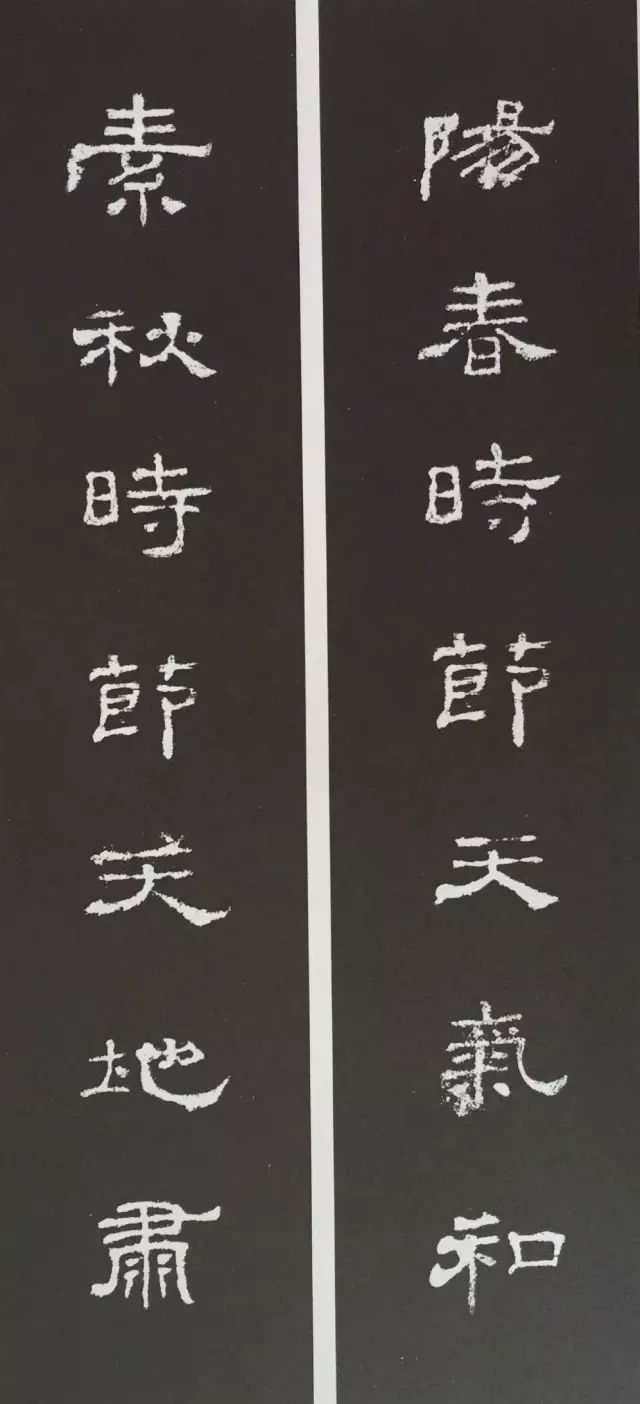 陽春時節天氣和
素秋時節天地肅